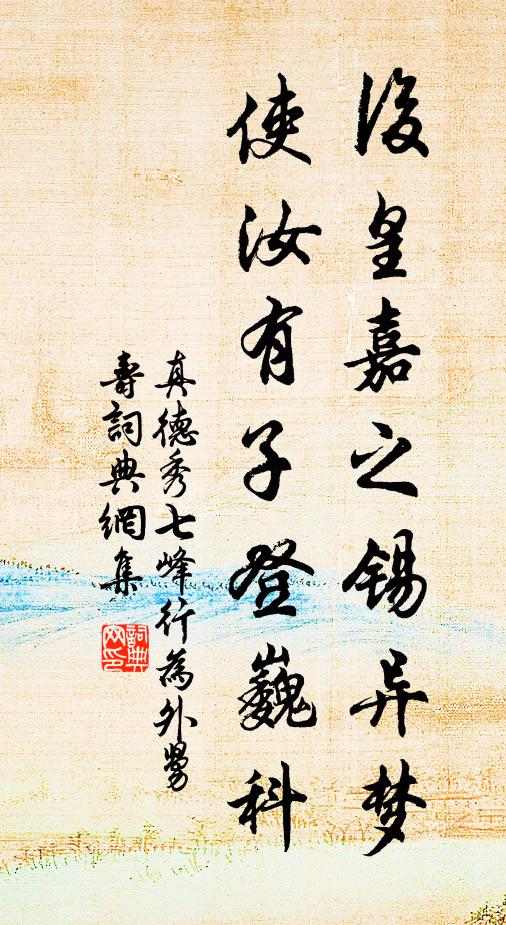 後皇嘉之锡异梦
使汝有子登巍科
真德秀七峰行為外舅
壽詞典網集
詞典网印